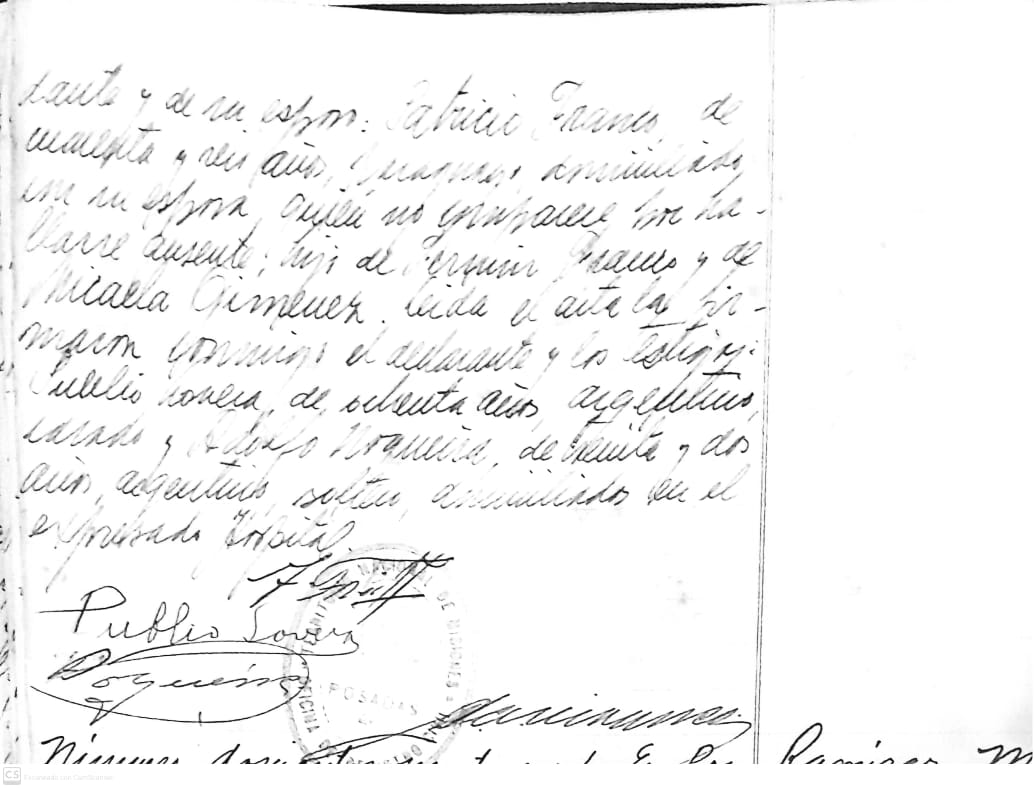 dante y de su esposo: Patricio Franco, de
cincuenta y seis años, paraguayo, domiciliado
con su esposa, quien no comparece por ha-
llarse ausente; hijo de Fermin Franco y de
Micaela Gimenez. Leida el acta la fir-
maron conmigo el declarante y los testigos:
Publio Lovera, de ochenta años, argentino,
casado y Adolfo Nogueira, de treinta y dos
años, argentino, soltero, domiciliados en el
expresado Hospital.
Publio Lovera
Nogueira
NACIONAL DE MISIONES
OFICINA
POSADAS
Número Ramírez M
CS Escaneado con CamScanner